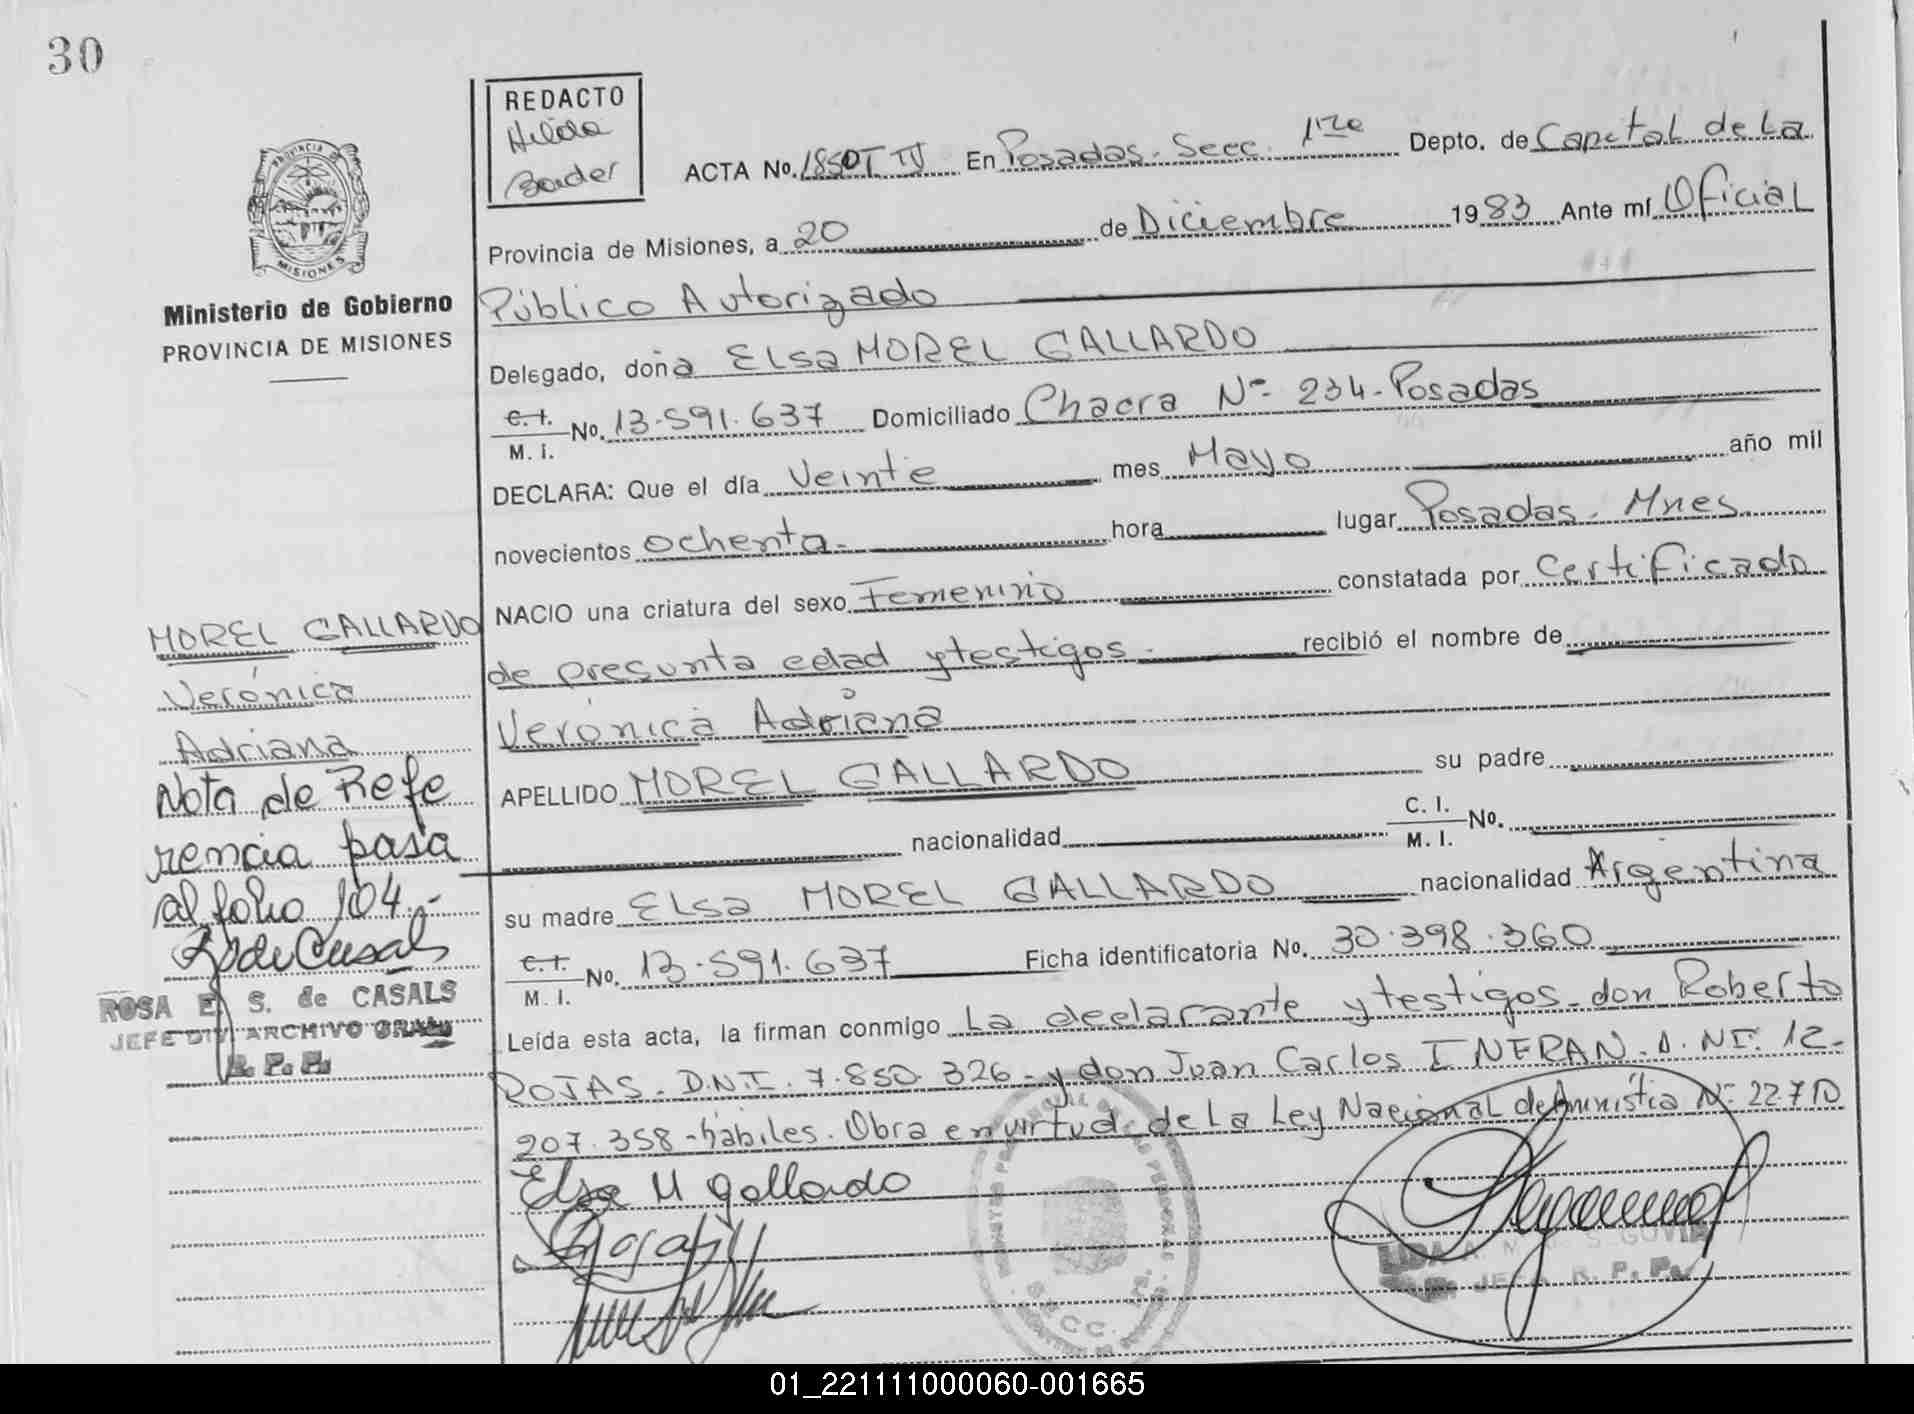 30
REDACTO
Hilda
Bonder
ACTA No. 1850T IV En Posadas. Secc. 1ra Depto. de Capital de La
Provincia de Misiones, a 20 de Diciembre 1983 Ante mí Oficial
Público Autorizado
Delegado, doña ELSa MOREL GALLARDO
C.I. M. I. No. 13.591.637 Domiciliado Chacra Nº 234-Posadas
DECLARA: Que el día Veinte mes Mayo año mil
novecientos ochenta.- hora lugar Posadas. Mnes
NACIO una criatura del sexo Femenino constatada por Certificado
de presunta edad y testigos.- recibió el nombre de
Verónica Adriana
APELLIDO MOREL GALLARDO su padre
nacionalidad C. I. M. I. No.
su madre ELSa MOREL GALLARDO nacionalidad Argentina
C.I. M. I. No. 13.591.637 Ficha identificatoria No. 30.398.360
Leída esta acta, la firman conmigo La declarante y testigos-don Roberto
ROJAS. D.N.I. 7.850.326-y don Juan Carlos INFRAN. D.NI. 12-
207.358-hábiles. Obra en virtud de La Ley Nacional de Amnistía Nº 22.710
Elsa M Gallardo
PROVINCIA DE
MISIONES
Ministerio de Gobierno
PROVINCIA DE MISIONES
MOREL GALLARDO
Verónica
Adriana
Nota de Refe
rencia pasa
al folio 104.-
R de Casals
ROSA E. S. de CASALS
JEFE DIV ARCHIVO GRAL
R. P. P.
SEGOVIA
JEFA R. P. P.
SECC.
01_221111000060-001665